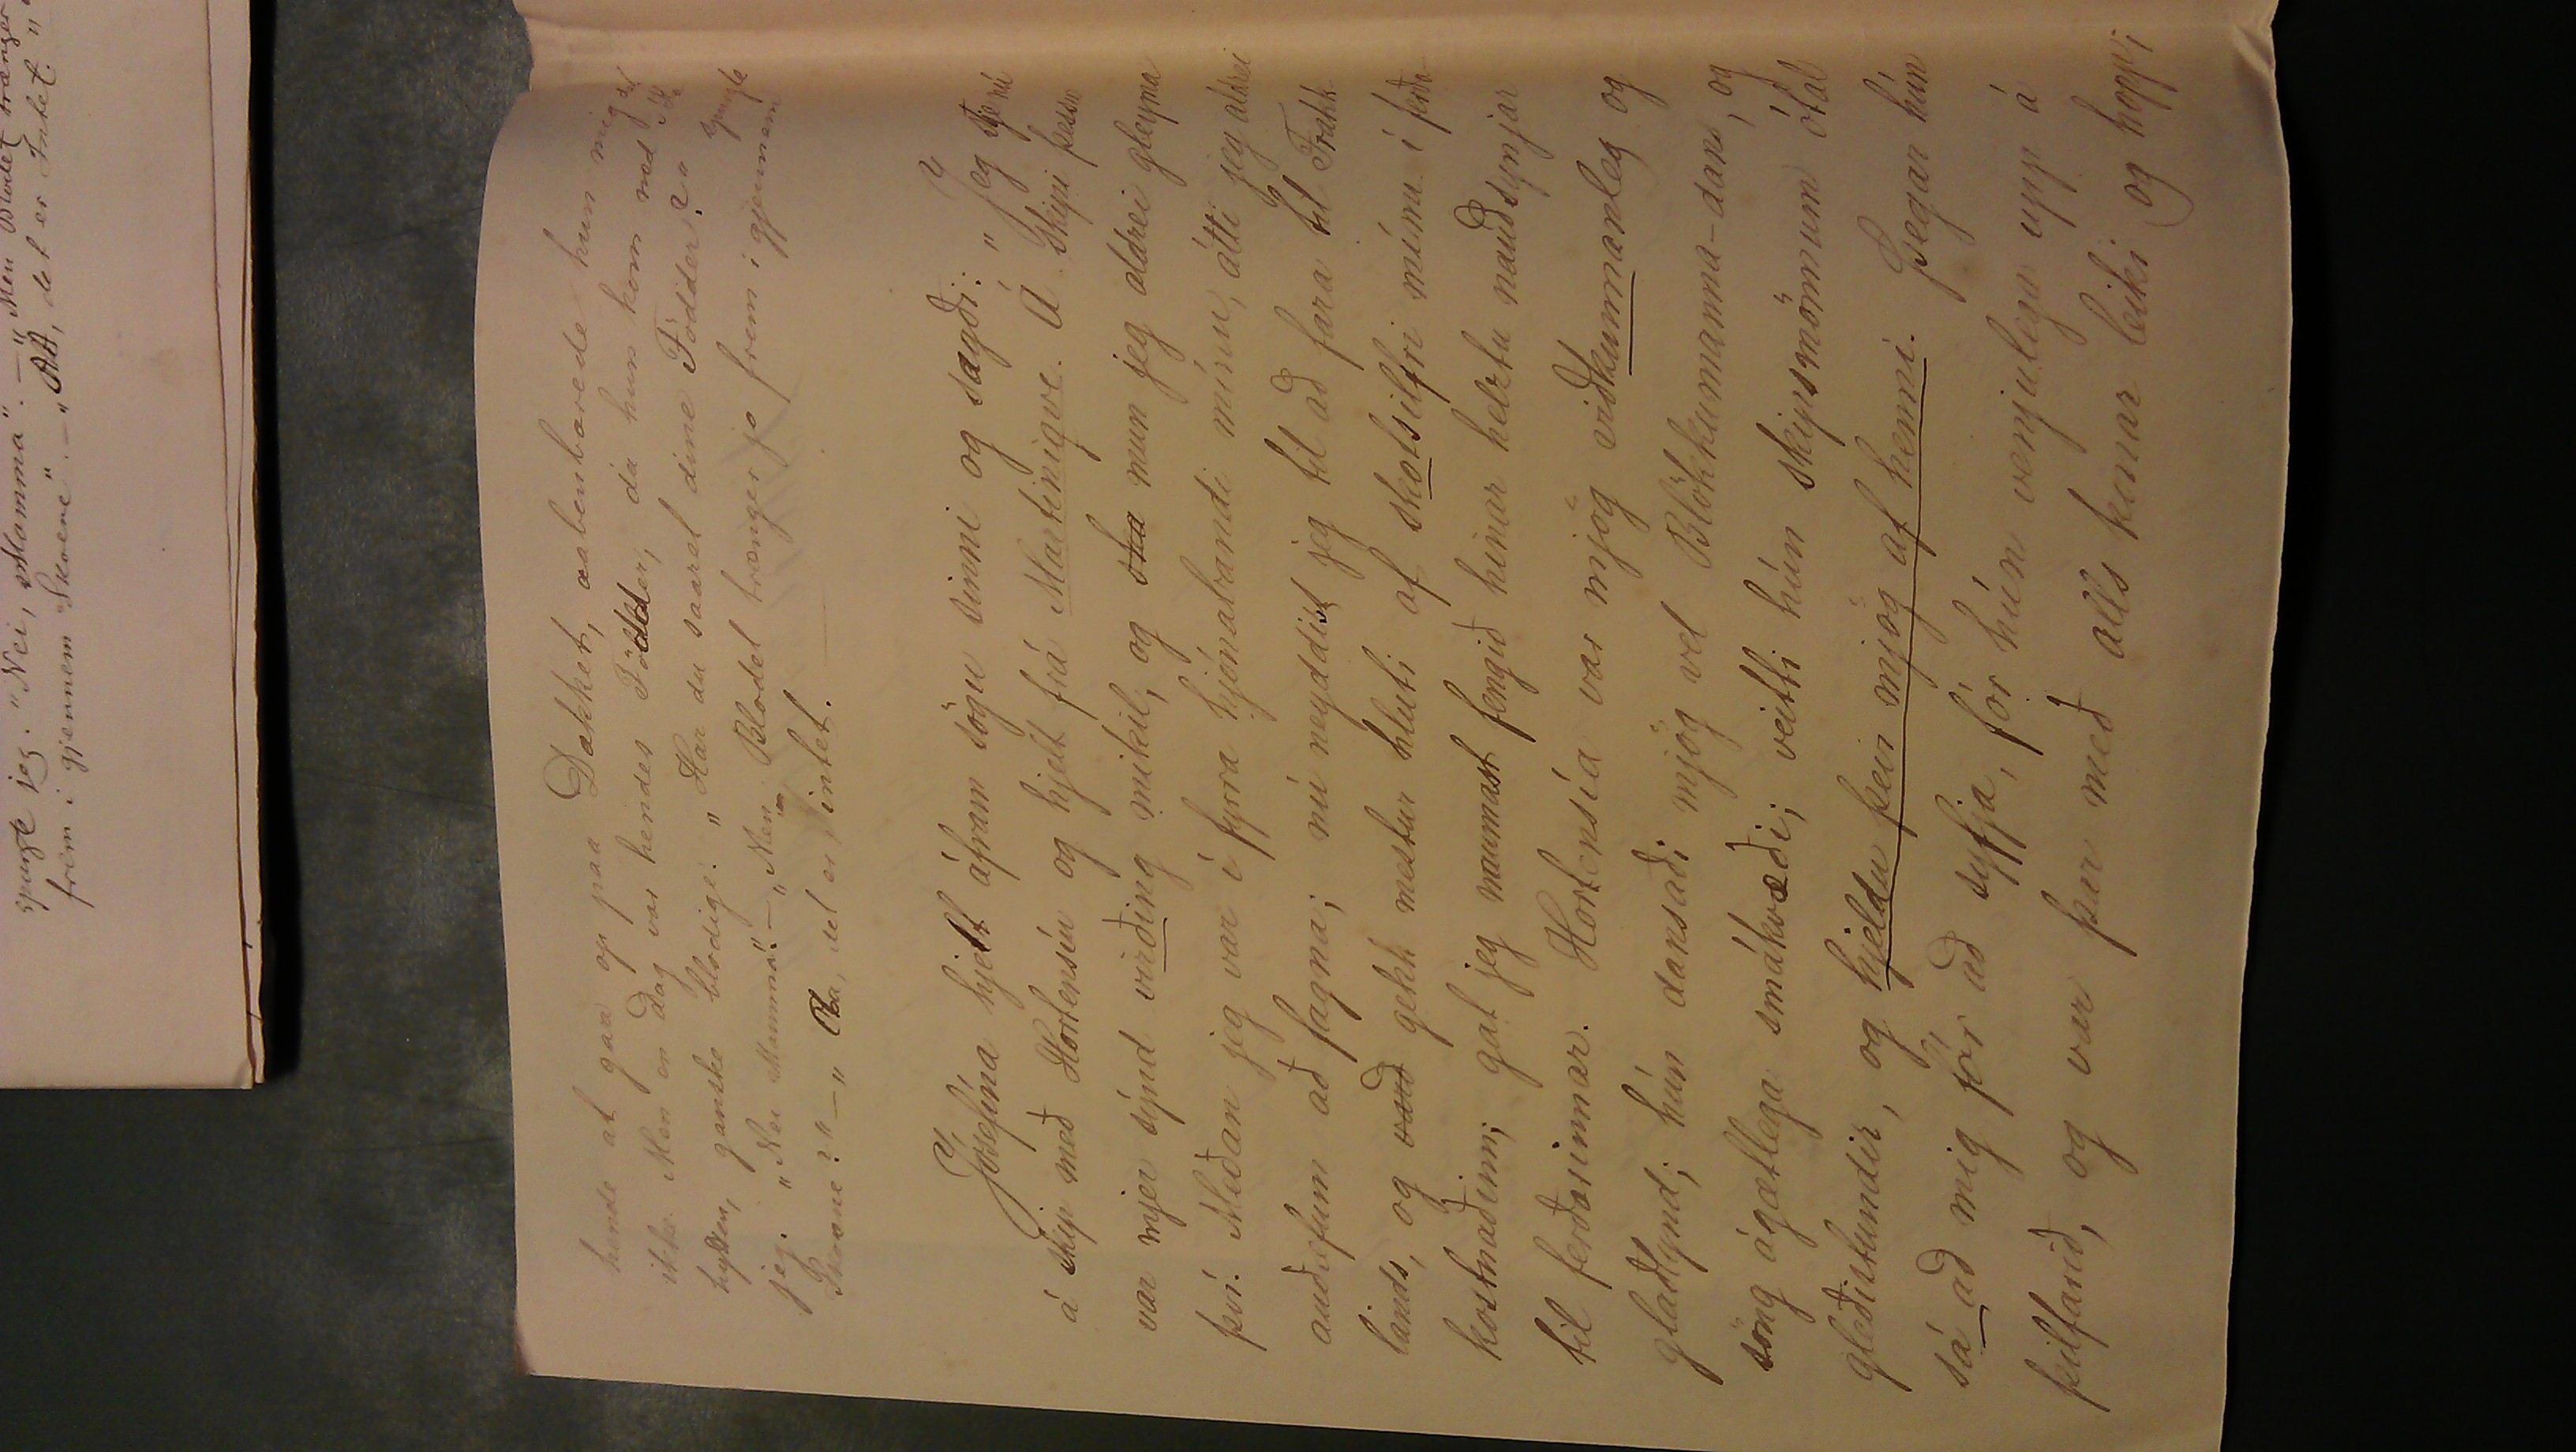 spurgte jeg. "Nei, Mamma". — "Men Blodet trænger
frem i gjennem Skoene". — "Aa, det er Intet."
hende at gaa op paa Dækket, aabenbarede hun mig det
ikke. Men en Dag var hendes Födder, da hun kom ned
ganske blodige. "Har du saaret dine Födder?" spurgte
jeg. "Nei Mamma." — "Men Blodet trænger jo frem i gjennem
Skoene?" — "Aa, det er intet.
Jósefína hjelt áfram sögu sinni og sagði: "Jeg sje nú
á skip með Hortensíu og hjelt frá Martinique. Á skipi þessu
var mjer sýnd virðing mikil, og ska mun jeg aldrei gleyma
því. Meðan jeg var í fyrra hjónabandi mínu, átti jeg aldrei
auðæfum að fagna; nú neyddist jeg til að fara til Frakk-
lands, og varð gekk mestur hluti af skotsilfri mínu í ferða-
kostnaðinn; gat jeg naumast fengið hinar helztu nauðsynjar
til ferðarinnar. Hortensía var mjög viðkunnanleg og
glaðlynd; hún dansaði mjög vel Blökkumanna-dans, og
söng ágætlega smákvæði; veitti hún skipsmönnum ótal
gleðistundir, og hjeldu þeir mjög af henni. Þegar hún
sá að mig fór að syfja, fór hún venjulega upp á
þilfarið, og var þar með alls konar leiki og hoppi